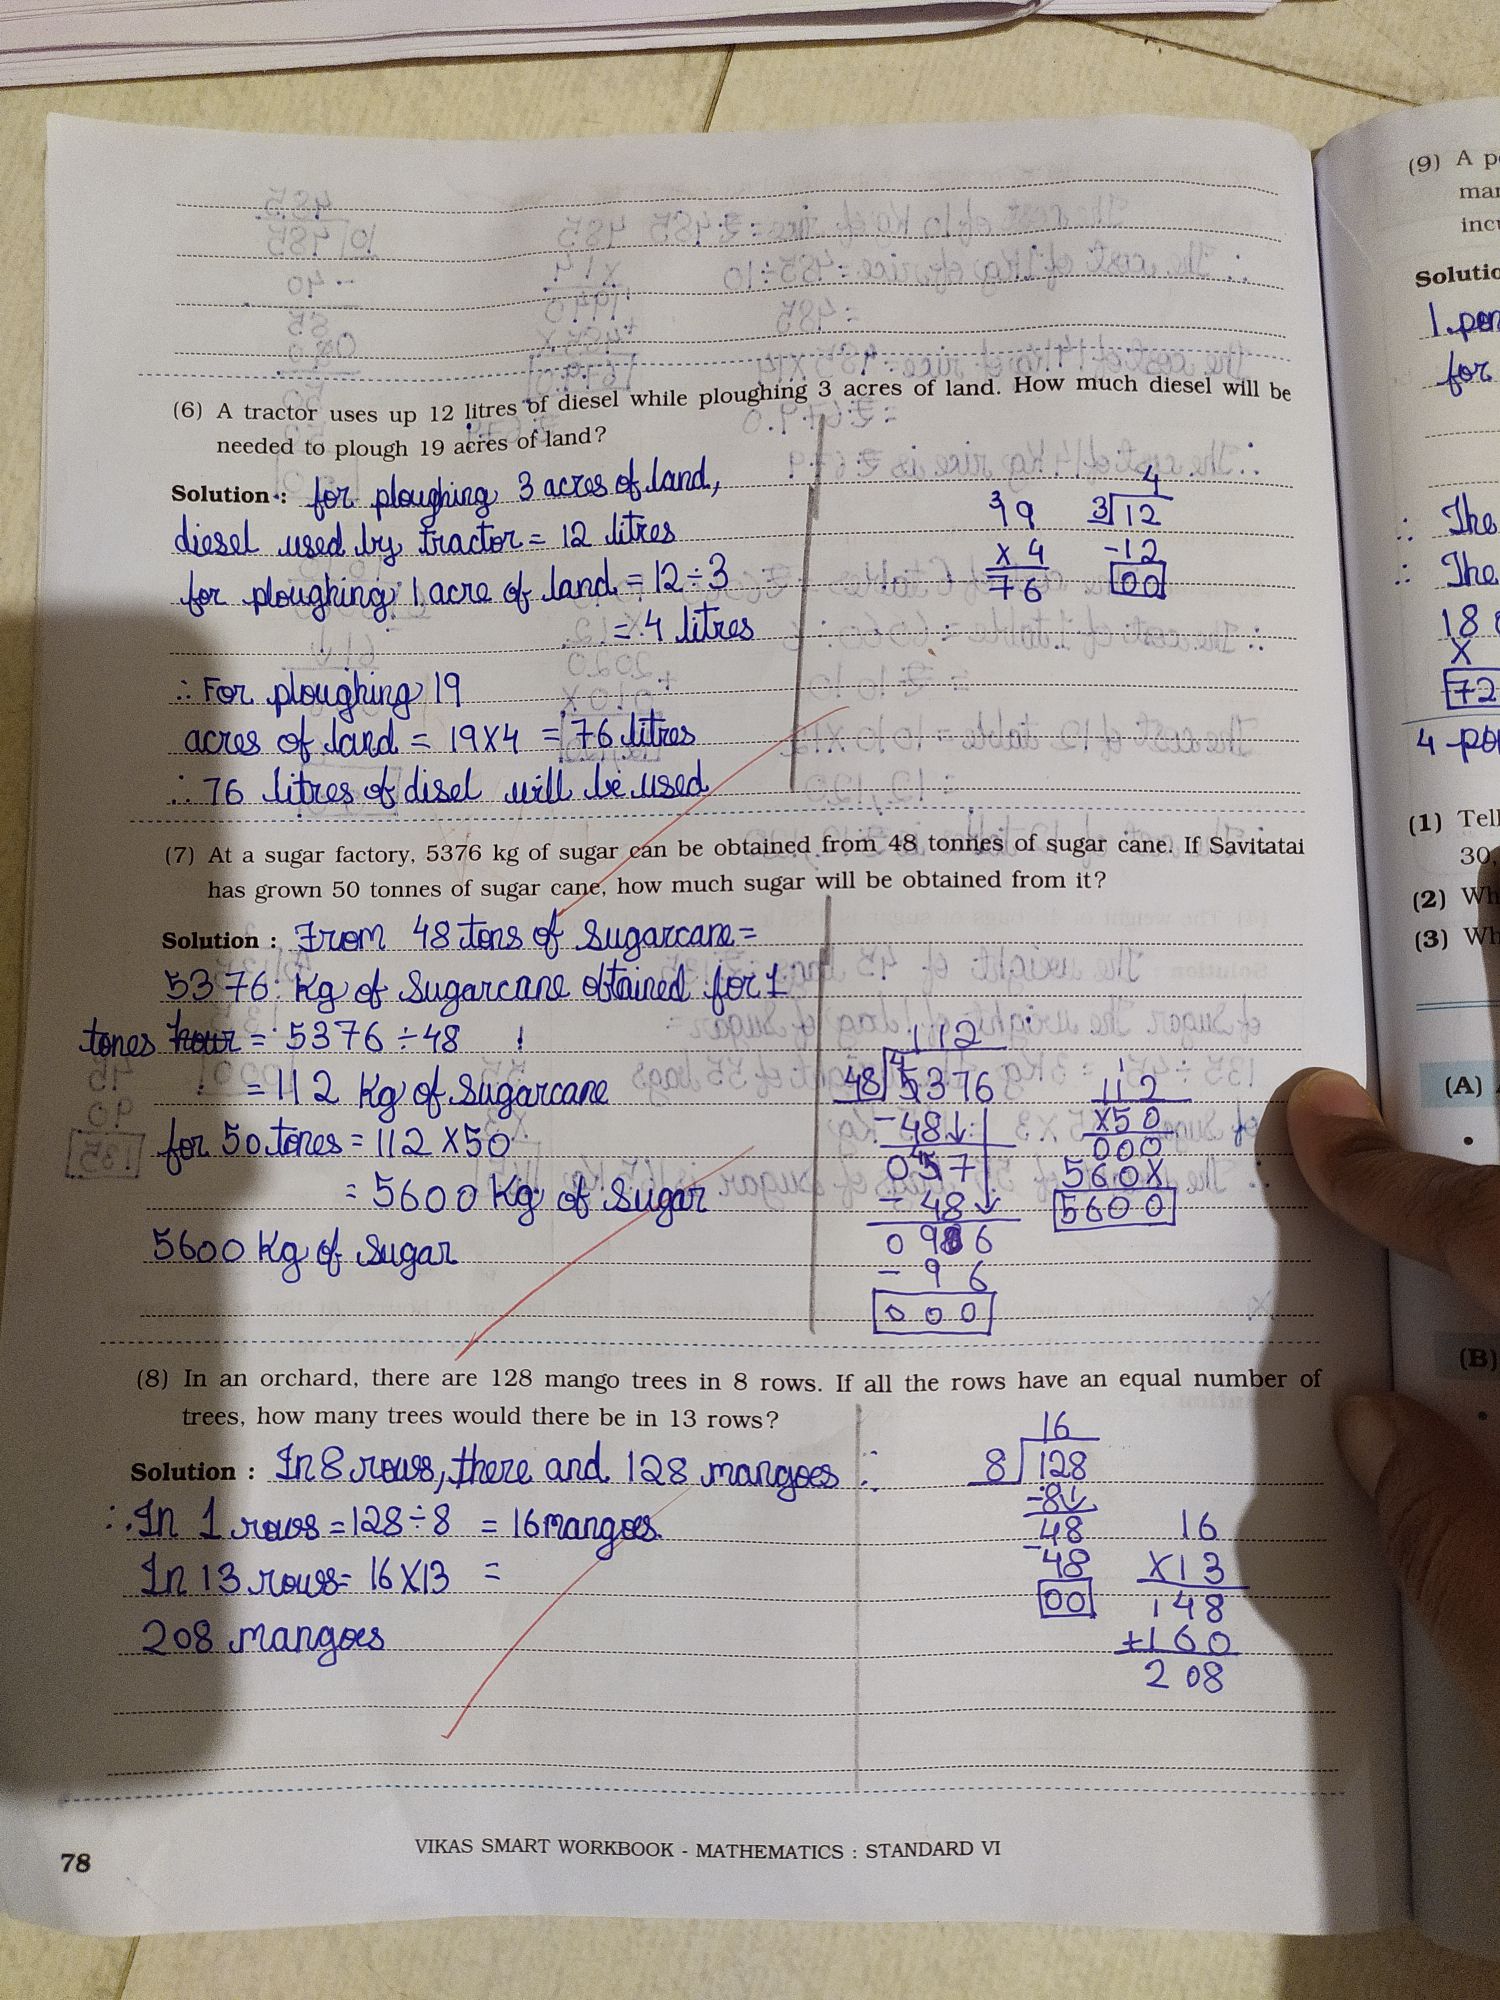 (6) A tractor uses up 12 litres of diesel while ploughing 3 acres of land. How much diesel will be
needed to plough 19 acres of land?
Solution : for ploughing 3 acres of land,
diesel used by tractor = 12 litres
for ploughing 1 acre of land = 12 ÷ 3
= 4 litres
∴ For ploughing 19
acres of land = 19 X 4 = 76 litres
∴ 76 litres of disel will be used
19
X 4
76
4
3 12
-12
00
(7) At a sugar factory, 5376 kg of sugar can be obtained from 48 tonnes of sugar cane. If Savitatai
has grown 50 tonnes of sugar cane, how much sugar will be obtained from it?
Solution : From 48 tons of sugarcane =
5376 kg of sugarcane obtained for 1
tones hour = 5376 ÷ 48
= 112 kg of sugarcane
for 50 tones = 112 X 50
= 5600 kg of sugar
5600 kg of sugar
112
48 5376
-48
057
- 48
0 9 6
- 9 6
0 0 0
112
X50
000
560X
5600
(8) In an orchard, there are 128 mango trees in 8 rows. If all the rows have an equal number of
trees, how many trees would there be in 13 rows?
Solution : In 8 rows, there and 128 mangoes ∴
∴ In 1 rows = 128 ÷ 8 = 16 mangoes.
In 13 rows = 16 X 13 =
208 mangoes
16
8 128
-8
48
-48
00
16
X13
148
+160
208
78
VIKAS SMART WORKBOOK - MATHEMATICS : STANDARD VI
(9) A
Solutio
1 pen
for
∴ The
∴ The
X
72
4
(1) Tell
30,
(2) Wh
(3) Wh
(A)
(B)